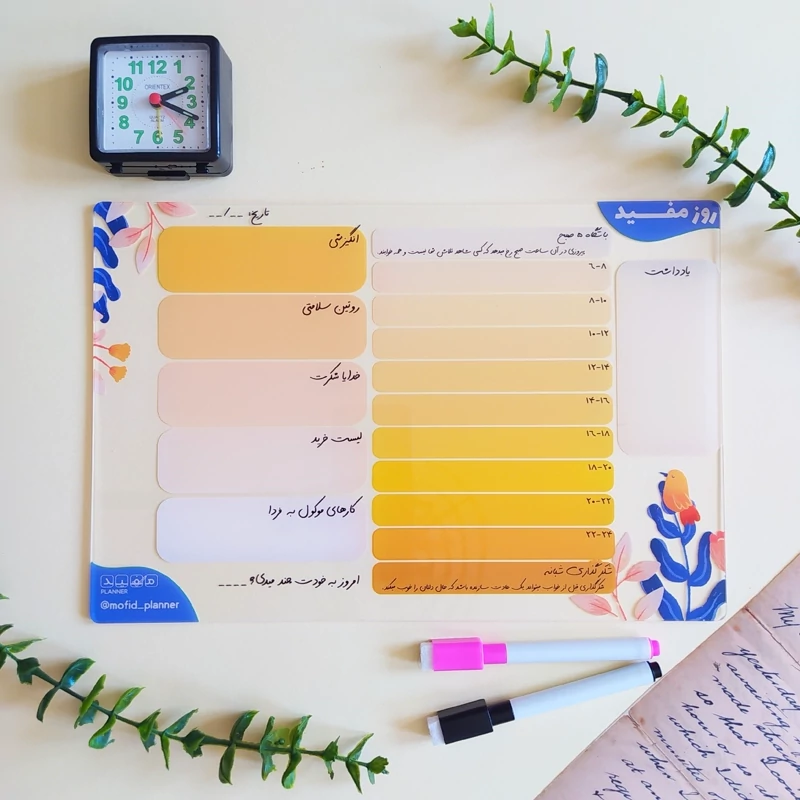 روز مفید
تاریخ: __/__
باشگاه ۵ صبح
یادداشت
۶-۸
۸-۱۰
۱۰-۱۲
۱۲-۱۴
۱۴-۱۶
۱۶-۱۸
۱۸-۲۰
۲۰-۲۲
۲۲-۲۴
شکرگذاری شبانه
شکرگذاری قبل از خواب میتواند یک عادت سازنده باشد که حال دلمان را خوب میکند
انگیزشی
روتین سلامتی
خدایا شکرت
لیست خرید
کارهای موکول به فردا
امروز به خودت چند میدی؟ ____
مفید
PLANNER
@mofid_planner
11 12 1
10 2
9 3
8 4
7 6 5
ORIENTEX
QUARTZ
My
yesterday
made
so that I
hour or so at
minutes
which I
when